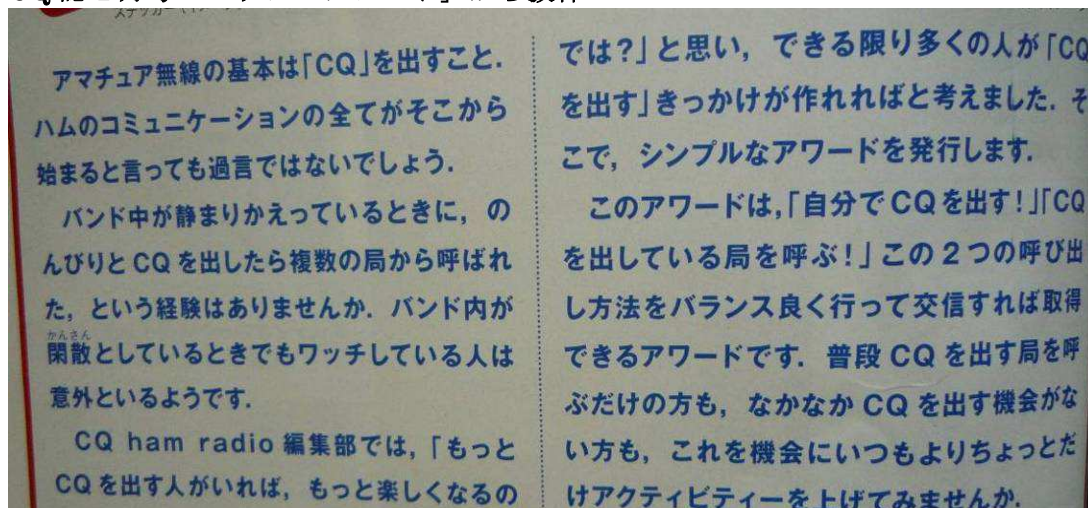 アマチュア無線の基本は「CQ」を出すこと.
ハムのコミュニケーションの全てがそこから
始まると言っても過言ではないでしょう.
バンド中が静まりかえっているときに，の
んびりとCQを出したら複数の局から呼ばれ
た，という経験はありませんか．バンド内が
かんさん
閑散としているときでもワッチしている人は
意外といるようです.
CQ ham radio 編集部では，「もっと
CQを出す人がいれば，もっと楽しくなるの
では？」と思い，できる限り多くの人が「CQ
を出す」きっかけが作れればと考えました．そ
こで，シンプルなアワードを発行します.
このアワードは，「自分でCQを出す！」「CQ
を出している局を呼ぶ！」この2つの呼び出
し方法をバランス良く行って交信すれば取得
できるアワードです．普段CQを出す局を呼
ぶだけの方も，なかなかCQを出す機会がな
い方も，これを機会にいつもよりちょっとだ
けアクティビティーを上げてみませんか.